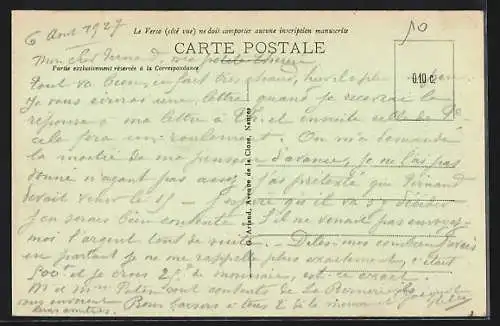 Le Verso (côté vue) ne doit comporter aucune inscription manuscrite
6 Aout 1927
10
CARTE POSTALE
Mon cher Fernand, ma petite
Partie exclusivement réservée à la Correspondance
Tout va bien, il fait très chaud, hier il a plu
0.10 c.
Je vous écrirai une lettre quand je recevrai la
réponse à ma lettre à et ensuite celle de
cela fera un roulement. On m'a demandé
la moitié de ma pension d'avance, je ne l'ai pas
donné n'ayant pas assez, j'ai prétexté que Fernand
devait venir le 15. J'espère qu'il va s'y décider
j'en serais bien contente. S'il ne venait pas envoyez-
moi l'argent tout de suite. Dites-moi combien j'avais
en partant je ne me rappelle plus exactement, c'était
500f et je crois 25f de monnaie, est-ce exact.
M et Mme sont contents de La
vous envoient Bons baisers à tous 2 de la
leurs amitiés.
G. Artaud, Avenue de la Close, Nantes